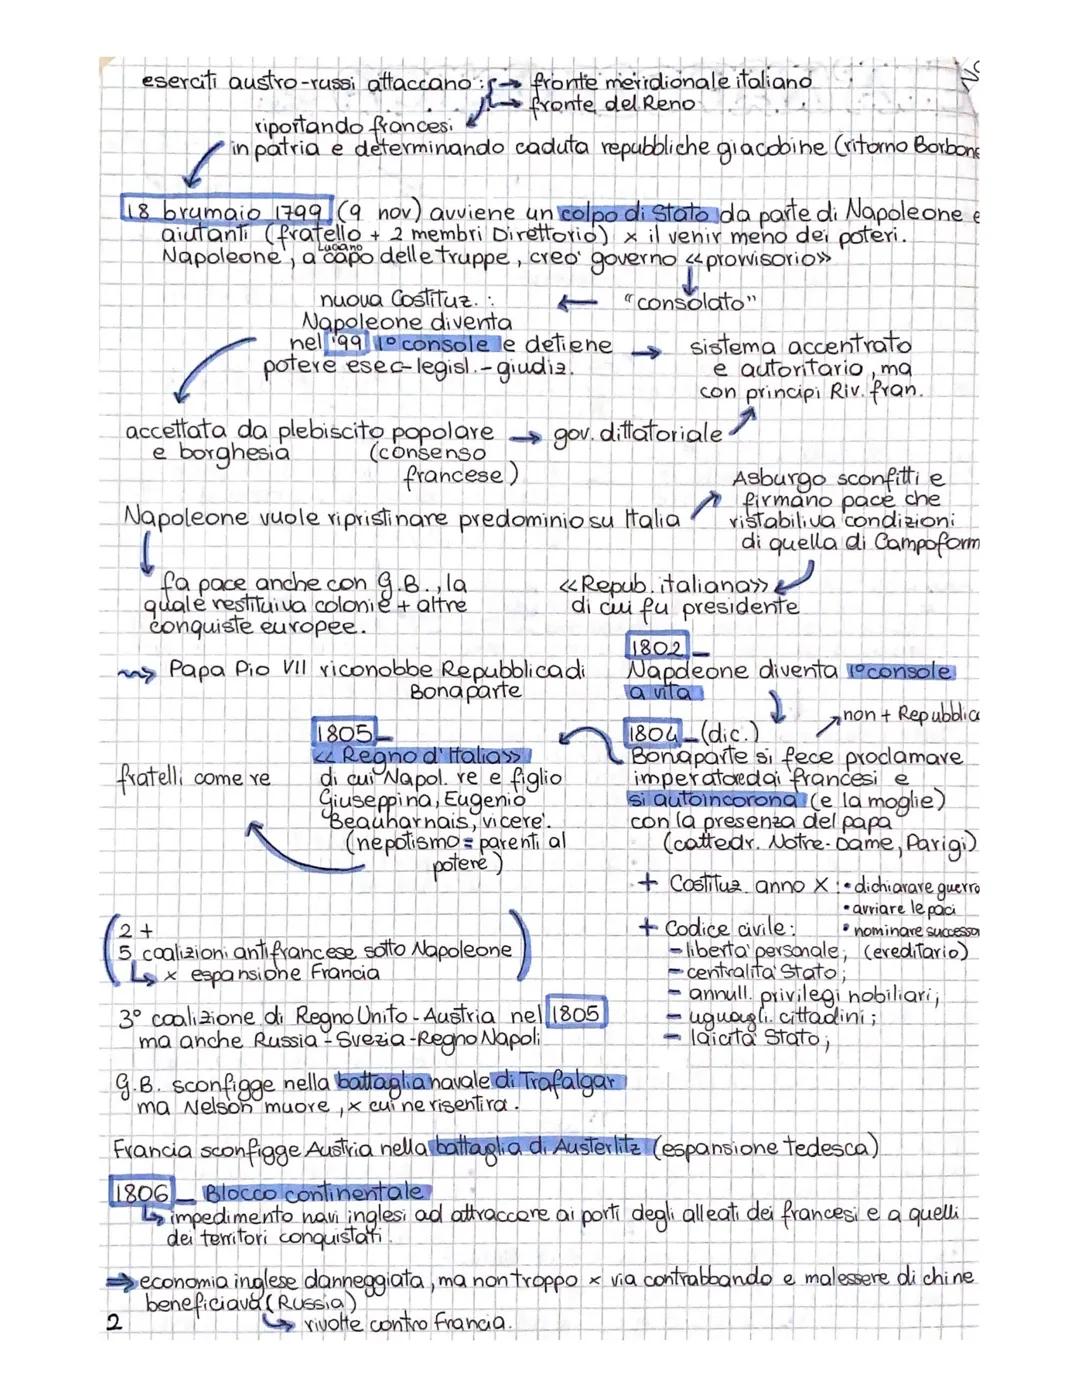 eserciti austro-russi attaccano: → fronte meridionale italiano
→ fronte del Reno
riportando francesi
in patria e determinando caduta repubbliche giacobine (ritorno Borbone
18 brumaio 1799 (9 nov) avviene un colpo di Stato da parte di Napoleone e
aiutanti (fratello + 2 membri Direttorio) x il venir meno dei poteri.
Luciano
Napoleone, a capo delle truppe, creò governo «provvisorio»
nuova Costituz. : ← "consolato"
Napoleone diventa
nel '99 1° console e detiene → sistema accentrato
potere esec-legisl.-giudiz.
e autoritario, ma
con principi Riv. fran.
accettata da plebiscito popolare → gov. dittatoriale
e borghesia (consenso
francese)
Asburgo sconfitti e
firmano pace che
Napoleone vuole ripristinare predominio su Italia
ristabiliva condizioni
di quella di Campoform
fa pace anche con G.B., la
quale restituiva colonie + altre
conquiste europee.
«Repub. italiana»
di cui fu presidente
1802
Papa Pio VII riconobbe Repubblica di
Bonaparte
Napoleone diventa 1° console
a vita
non + Repubblica
1805
«Regno d'Italia»
fratelli come re
di cui Napol. re e figlio
Giuseppina, Eugenio
Beauharnais, viceré.
(nepotismo = parenti al
potere)
1804 (dic.)
Bonaparte si fece proclamare
imperatore dai francesi e
si autoincorona (e la moglie)
con la presenza del papa
(cattedr. Notre-Dame, Parigi)
+ Costituz. anno X : • dichiarare guerra
• avviare le paci
• nominare successor
(ereditario)
+ Codice civile:
- libertà personale;
- centralità Stato;
- annull. privilegi nobiliari;
- uguagli. cittadini;
- laicità Stato;
2 +
5 coalizioni antifrancese sotto Napoleone
↳ x espansione Francia
3° coalizione di Regno Unito - Austria nel 1805
ma anche Russia - Svezia - Regno Napoli
G.B. sconfigge nella battaglia navale di Trafalgar
ma Nelson muore, x cui ne risentirà.
Francia sconfigge Austria nella battaglia di Austerlitz (espansione tedesca)
1806 Blocco continentale
↳ impedimento navi inglesi ad attraccare ai porti degli alleati dei francesi e a quelli
dei territori conquistati.
→ economia inglese danneggiata, ma non troppo x via contrabbando e malessere di chi ne
beneficiava (Russia)
↳ rivolte contro Francia.
2